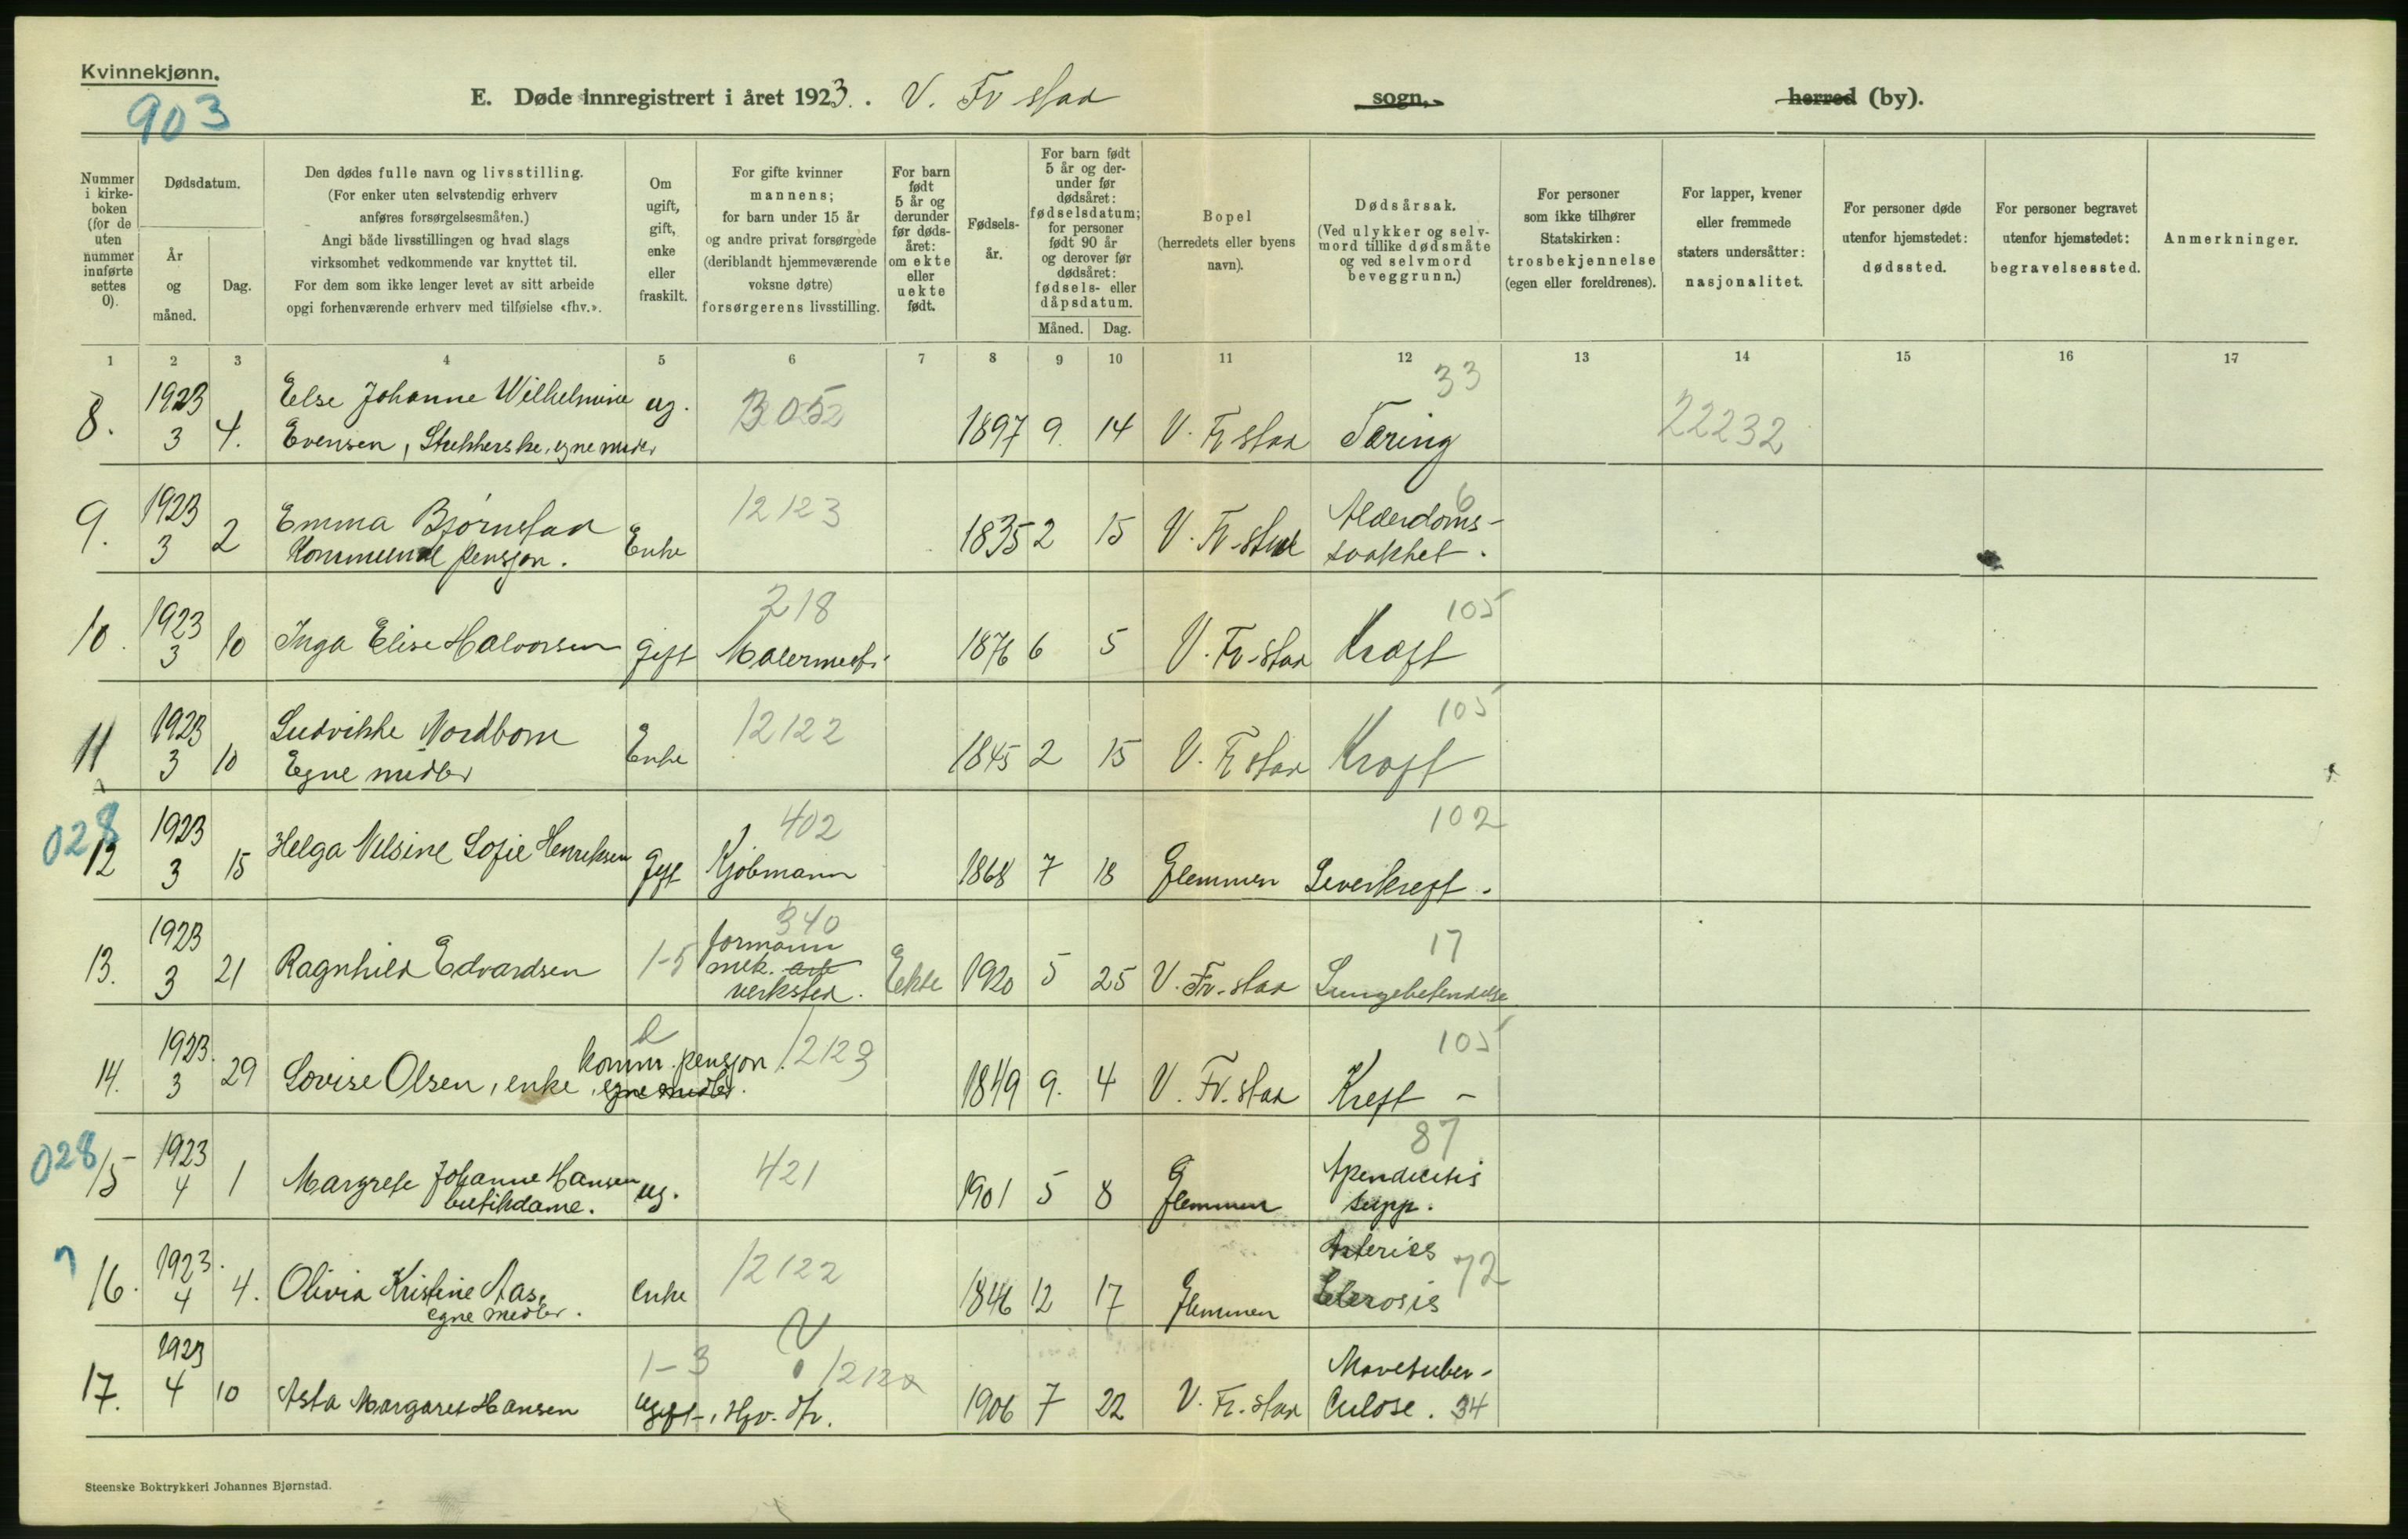 Kvinnekjønn.
903
E. Døde innregistrert i året 1923. V. Fr stad sogn, herred (by).
Nummer i kirkeboken (for de uten nummer innførte settes 0).
Dødsdatum.
År og måned.
Dag.
Den dødes fulle navn og livsstilling.
(For enker uten selvstendig erhverv anføres forsørgelsesmåten.)
Angi både livsstillingen og hvad slags virksomhet vedkommende var knyttet til.
For dem som ikke lenger levet av sitt arbeide opgi forhenværende erhverv med tilføielse «fhv.».
Om ugift, gift, enke eller fraskilt.
For gifte kvinner mannens; for barn under 15 år og andre privat forsørgede (deriblandt hjemmeværende voksne døtre) forsørgerens livsstilling.
For barn født 5 år og derunder før dødsåret: om ekte eller uekte født.
Fødselsår.
For barn født 5 år og derunder før dødsåret: fødselsdatum; for personer født 90 år og derover før dødsåret: fødsels- eller dåpsdatum.
Måned.
Dag.
Bopel (herredets eller byens navn).
Dødsårsak.
(Ved ulykker og selvmord tillike dødsmåte og ved selvmord beveggrunn.)
For personer som ikke tilhører Statskirken: trosbekjennelse (egen eller foreldrenes).
For lapper, kvener eller fremmede staters undersåtter: nasjonalitet.
For personer døde utenfor hjemstedet: dødssted.
For personer begravet utenfor hjemstedet: begravelsessted.
Anmerkninger.
1 2 3 4 5 6 7 8 9 10 11 12 13 14 15 16 17
8. 1923 3 4. Else Johanne Wilhelmine Evensen, Strikkerske, egne midler ug. 3052 1897 9. 14 V. Fr stad Tæring 33 22232
9. 1923 3 2 Emma Bjørnstad Kommunal pensjon. Enke 12123 1835 2 15 V. Fr-stad Alderdoms- svakhet. 6
10. 1923 3 10 Inga Elise Halvorsen gift 218 Malermest. 1876 6 5 V. Fr-stad Kræft 105
11 1923 3 10 Ludvikke Nordbom Egne midler Enke 12122 1845 2 15 V. Fr stad Kræft 105
028 12 1923 3 15 Helga Nilsine Sofie Henriksen Gift 402 Kjøbmann 1868 7 18 Glemmen Leverkreft. 102
13. 1923 3 21 Ragnhild Edvardsen 1-5 340 formann mek. arb verksted. Ekte 1920 5 25 V. Fr-stad Lungebetendelse 17
14. 1923. 3 29 Lovise Olsen, enke, egne midler. komm. pensjon. 12123 1849 9. 4 V. Fr. stad Kreft - 105
028 15 1923 4 1 Margrete Johanne Hansen butikdame. ug. 421 1901 5 8 Glemmen Apendicitis supp. 87
16. 1923. 4 4. Olivia Kristine Aas, egne midler. enke 12122 1846 12 17 Glemmen Arteries Sclerosis 72
17. 1923 4 10 Asta Margaret Hansen 1-3 ugift, Hjv. dtr. 1906 7 22 V. Fr. stad Mavetuber- culose. 34
Steenske Boktrykkeri Johannes Bjørnstad.